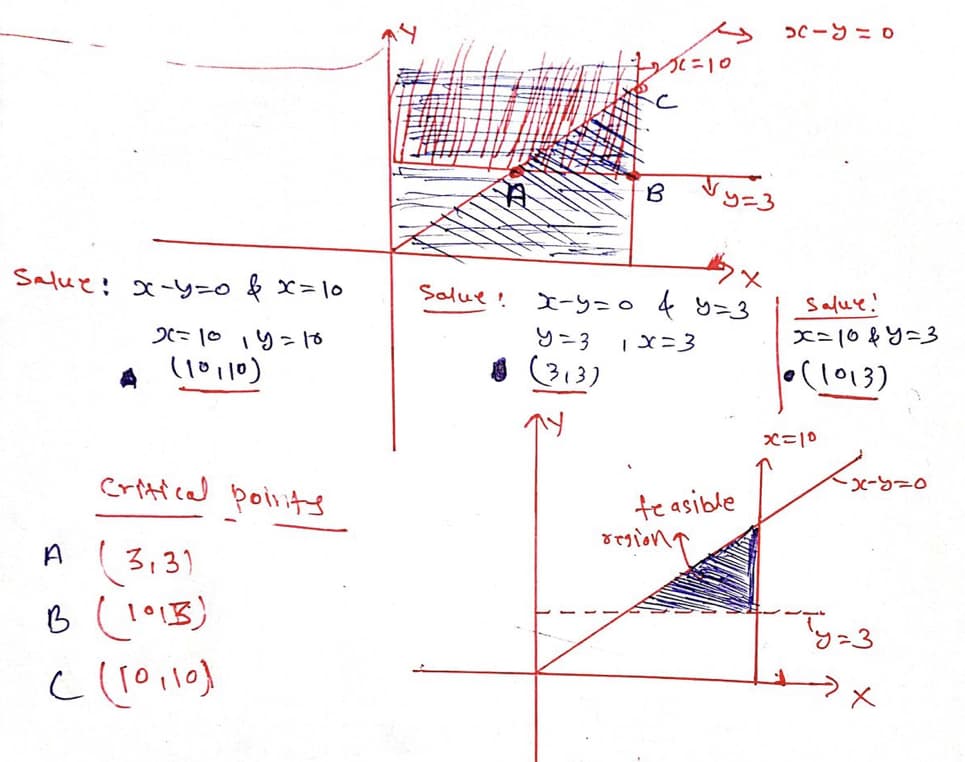 Y
x-y=0
x=10
C
A
B
y=3
X
Solve: x-y=0 & x=10
x=10, y=10
(10,10)
Solve: x-y=0 & y=3
y=3, x=3
(3,3)
Solve:
x=10 & y=3
(10,3)
Critical points
A (3,3)
B (10,3)
C (10,10)
Y
x=10
x-y=0
feasible
region
y=3
X